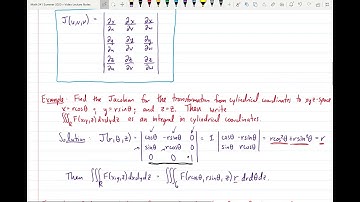 Math 241 Summer 2020 - Video Lecture Notes
J(u,v,w) = | ∂x/∂u ∂x/∂v ∂x/∂w |
| ∂y/∂u ∂y/∂v ∂y/∂w |
| ∂z/∂u ∂z/∂v ∂z/∂w |
Example: Find the Jacobian for the transformation from cylindrical coordinates to xyz-space
x = rcosθ, y = rsinθ, and z = z. Then write
∭_R F(x,y,z)dxdydz as an integral in cylindrical coordinates.
Solution: J(r,θ,z) = | cosθ -rsinθ 0 | = 1 | cosθ -rsinθ | = rcos²θ + rsin²θ = r
| sinθ rcosθ 0 | | sinθ rcosθ |
| 0 0 1 |
Then ∭_R F(x,y,z)dxdydz = ∭_G F(rcosθ, rsinθ, z) r drdθdz.